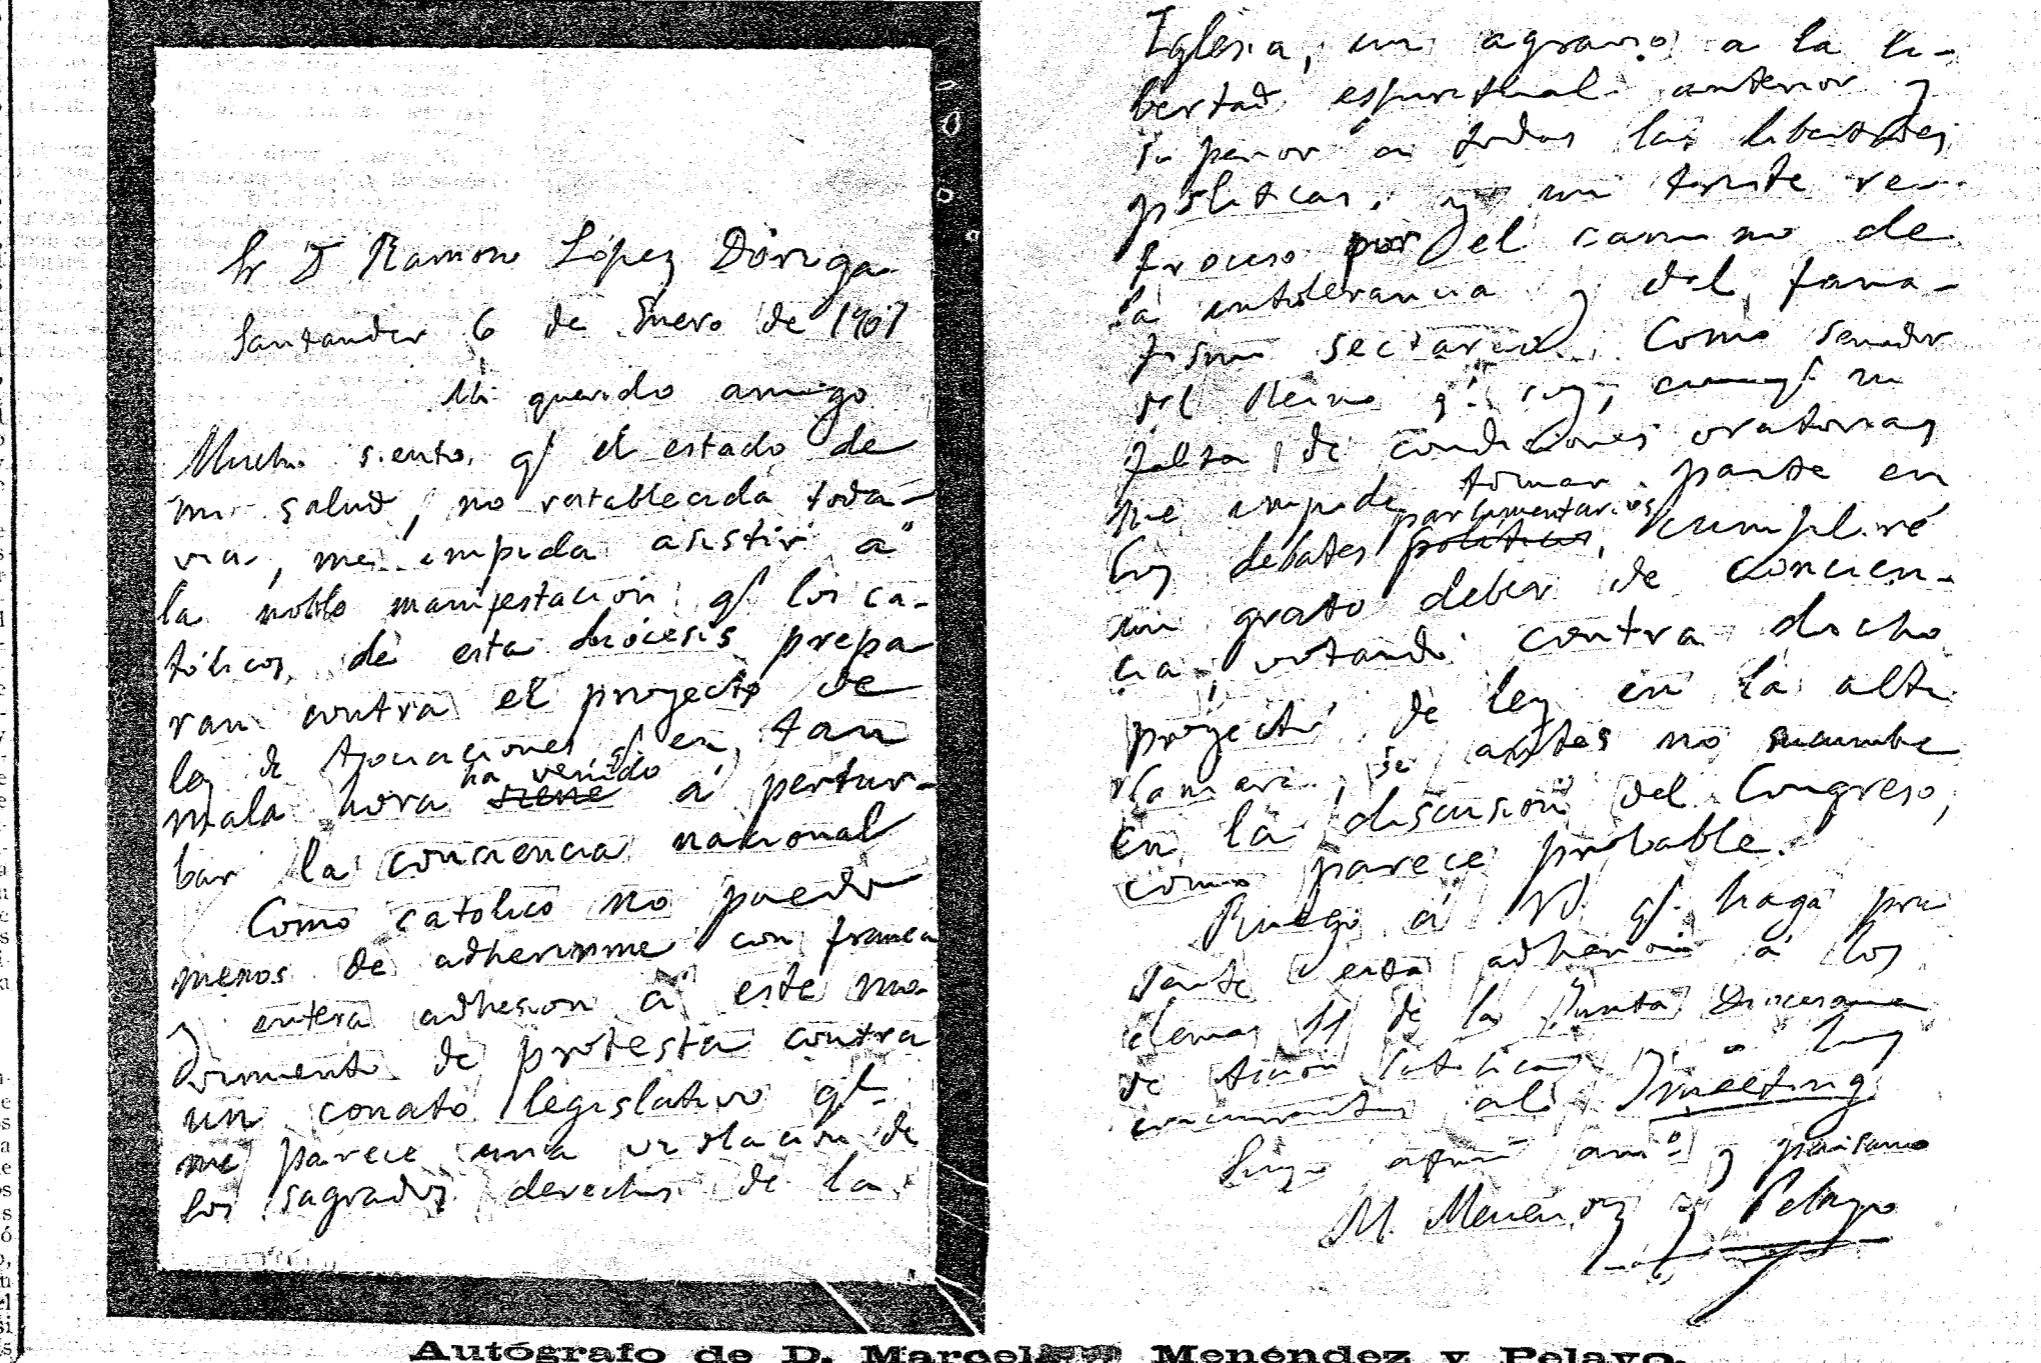 Sr D Ramon López Dóriga
Santander 6 de Enero de 1907
Mi querido amigo
Mucho siento q.e el estado de
mi salud, no restablecida toda-
via, me impida asistir á
la noble manifestación q.e los ca-
tólicos de esta diócesis prepa
ran contra el proyecto de
ley de Asociaciones q.e en tan
ha venido
mala hora viene á pertur-
bar la conciencia nacional
Como catolico no puedo
menos de adherirme con franca
y entera adhesion á este mo-
vimiento de protesta contra
un conato legislativo q.e
me parece una violacion de
los sagrados derechos de la
Iglesia, un agravio a la li-
bertad espiritual anterior y
superior a todas las libertades
politicas, y un triste re-
troceso por el camino de
la intolerancia y del fana-
tismo sectario. Como senador
del Reino q.e soy, aunq.e mi
falta de condiciones oratorias
me impide tomar parte en
parlamentarios
los debates politicos, cumpliré
un grato deber de concien-
cia, votando contra dicho
proyecto de ley en la alta
Camara, si antes no sucumbe
en la discusion del Congreso,
como parece probable.
Ruego á Vd. q.e haga pre
sente esta adhesion á los
demas SS de la Junta Diocesana
de Acción Catolica y a los
concurrentes al meeting
Suyo afmo am.o y paisano
M. Menendez y Pelayo
Autógrafo de D. Marcelino Menéndez y Pelayo.